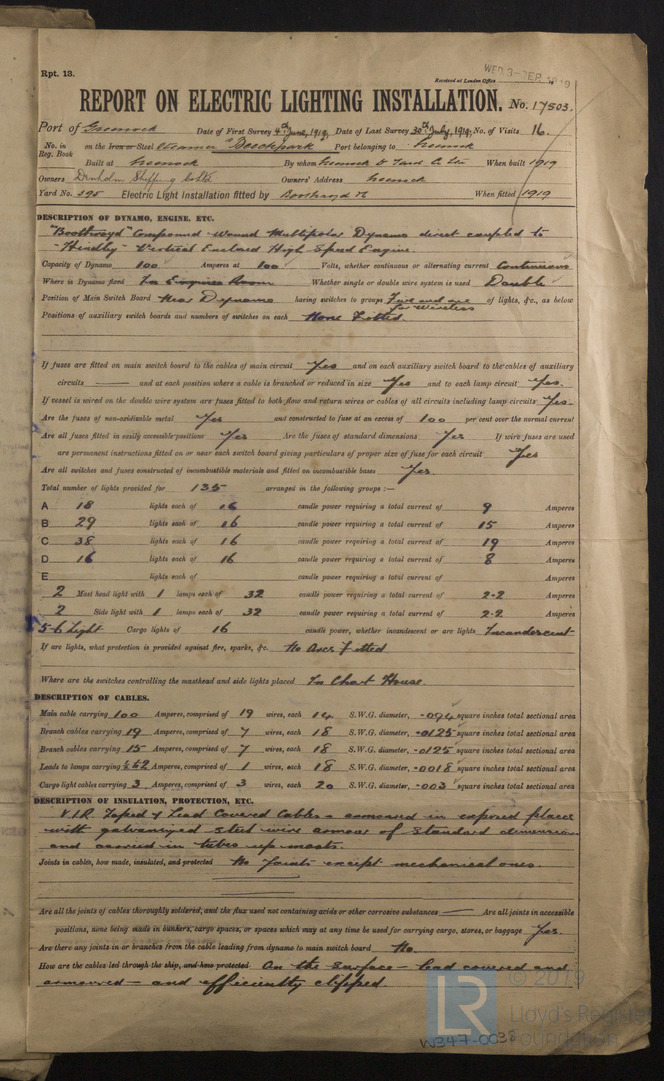 Rpt. 13.
Received at London Office WED 3-SEP. 1919
REPORT ON ELECTRIC LIGHTING INSTALLATION. No. 17503.
Port of Greenock Date of First Survey 4th June, 1919, Date of Last Survey 30th July, 1919, No. of Visits 16.
No. in Reg. Book on the Iron or Steel Steamer "Beechpark" Port belonging to Greenock
Built at Greenock By whom Greenock & Yard Co. Ltd When built 1919
Owners Denholm Shipping Co Ltd Owners' Address Greenock
Yard No. 395 Electric Light Installation fitted by Boothroyd When fitted 1919
DESCRIPTION OF DYNAMO, ENGINE, ETC.
"Boothroyd" Compound Wound Multipolar Dynamo direct coupled to
"Hindley" Vertical Enclosed High Speed Engine.
Capacity of Dynamo 100 Amperes at 100 Volts, whether continuous or alternating current Continuous
Where is Dynamo fixed In Engine Room Whether single or double wire system is used Double
Position of Main Switch Board Near Dynamo having switches to groups Five and one for Wireless of lights, &c., as below
Positions of auxiliary switch boards and numbers of switches on each None Fitted.
If fuses are fitted on main switch board to the cables of main circuit Yes and on each auxiliary switch board to the cables of auxiliary
circuits — and at each position where a cable is branched or reduced in size Yes and to each lamp circuit Yes.
If vessel is wired on the double wire system are fuses fitted to both flow and return wires or cables of all circuits including lamp circuits Yes
Are the fuses of non-oxidizable metal Yes and constructed to fuse at an excess of 100 per cent over the normal current
Are all fuses fitted in easily accessible positions Yes Are the fuses of standard dimensions Yes If wire fuses are used
are permanent instructions fitted on or near each switch board giving particulars of proper size of fuse for each circuit Yes
Are all switches and fuses constructed of incombustible materials and fitted on incombustible bases Yes.
Total number of lights provided for 135 arranged in the following groups :—
A 18 lights each of 16 candle power requiring a total current of 9 Amperes
B 29 lights each of 16 candle power requiring a total current of 15 Amperes
C 38 lights each of 16 candle power requiring a total current of 19 Amperes
D 16 lights each of 16 candle power requiring a total current of 8 Amperes
E lights each of candle power requiring a total current of Amperes
2 Mast head light with 1 lamps each of 32 candle power requiring a total current of 2.2 Amperes
2 Side light with 1 lamps each of 32 candle power requiring a total current of 2.2 Amperes
5-6 Light Cargo lights of 16 candle power, whether incandescent or arc lights Incandescent
If arc lights, what protection is provided against fire, sparks, &c. No Arcs fitted
Where are the switches controlling the masthead and side lights placed In Chart House.
DESCRIPTION OF CABLES.
Main cable carrying 100 Amperes, comprised of 19 wires, each 14 S.W.G. diameter, .094 square inches total sectional area
Branch cables carrying 19 Amperes, comprised of 7 wires, each 18 S.W.G. diameter, .0125 square inches total sectional area
Branch cables carrying 15 Amperes, comprised of 7 wires, each 18 S.W.G. diameter, .0125 square inches total sectional area
Leads to lamps carrying Amperes, comprised of 1 wires, each 18 S.W.G. diameter, .0018 square inches total sectional area
Cargo light cables carrying 3 Amperes, comprised of 3 wires, each 20 S.W.G. diameter, .003 square inches total sectional area
DESCRIPTION OF INSULATION, PROTECTION, ETC.
V.I.R. Taped & Lead Covered Cables - armoured in exposed places
with galvanized steel wire armour of standard dimensions
and carried in tubes up masts.
Joints in cables, how made, insulated, and protected No Joints except mechanical ones.
Are all the joints of cables thoroughly soldered, and the flux used not containing acids or other corrosive substances — Are all joints in accessible
positions, none being made in bunkers, cargo spaces, or spaces which may at any time be used for carrying cargo, stores, or baggage Yes.
Are there any joints in or branches from the cable leading from dynamo to main switch board No.
How are the cables led through the ship, and how protected On the surface - lead covered and
armoured - and efficiently clipped
© 2019
LR
Lloyd's Register
Foundation
W347-0038